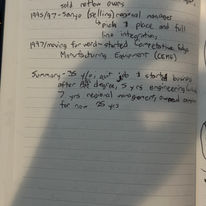 sold reflow ovens
1995/97 - Sanyo (selling) regional manager
pick & place and full
line integration
1997/moving forward - started Competitive
Manufacturing Equipment (CEMS)
Summary - 25 y/o, quit job & started business
after degree, 5 yrs engineering
7 yrs regional management, owned company
for now 25 yrs